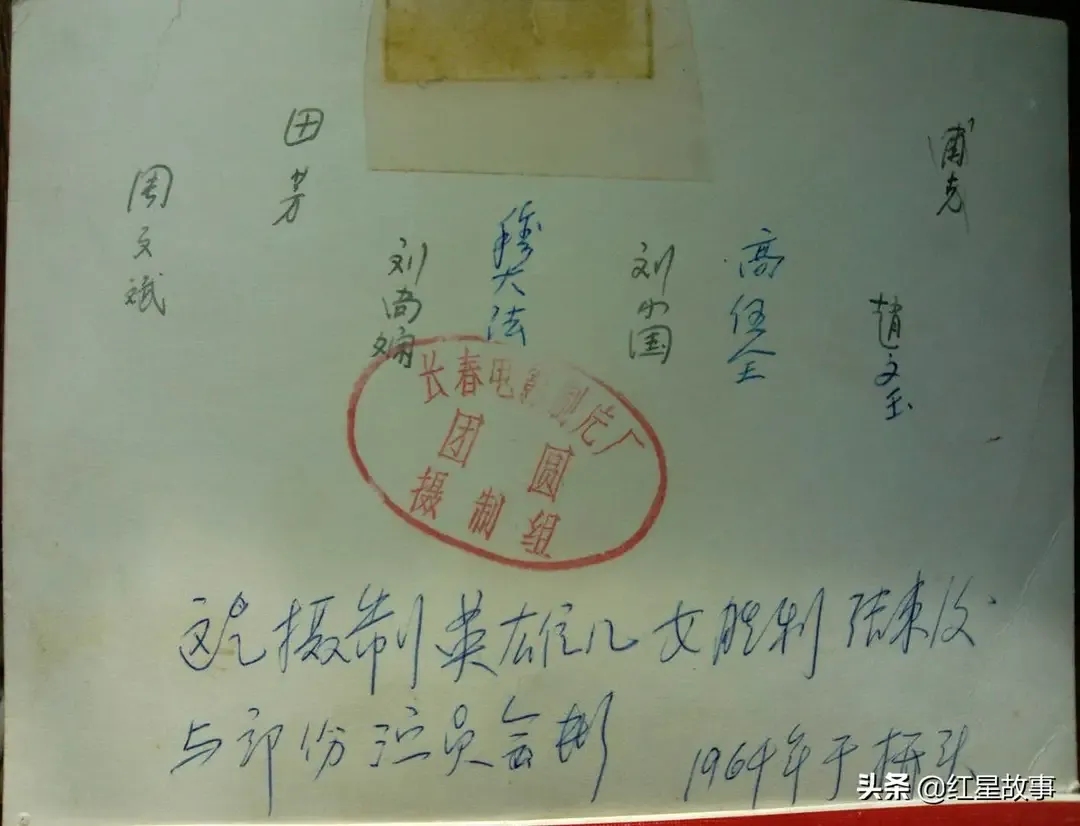 周文斌
田芳
刘尚娴
穆大法
刘小国
高伍全
赵文玉
浦克
长春电影制片厂
团圆
摄制组
这是摄制英雄儿女胜利结束后
与部份演员合影
1964年于
头条 @红星故事